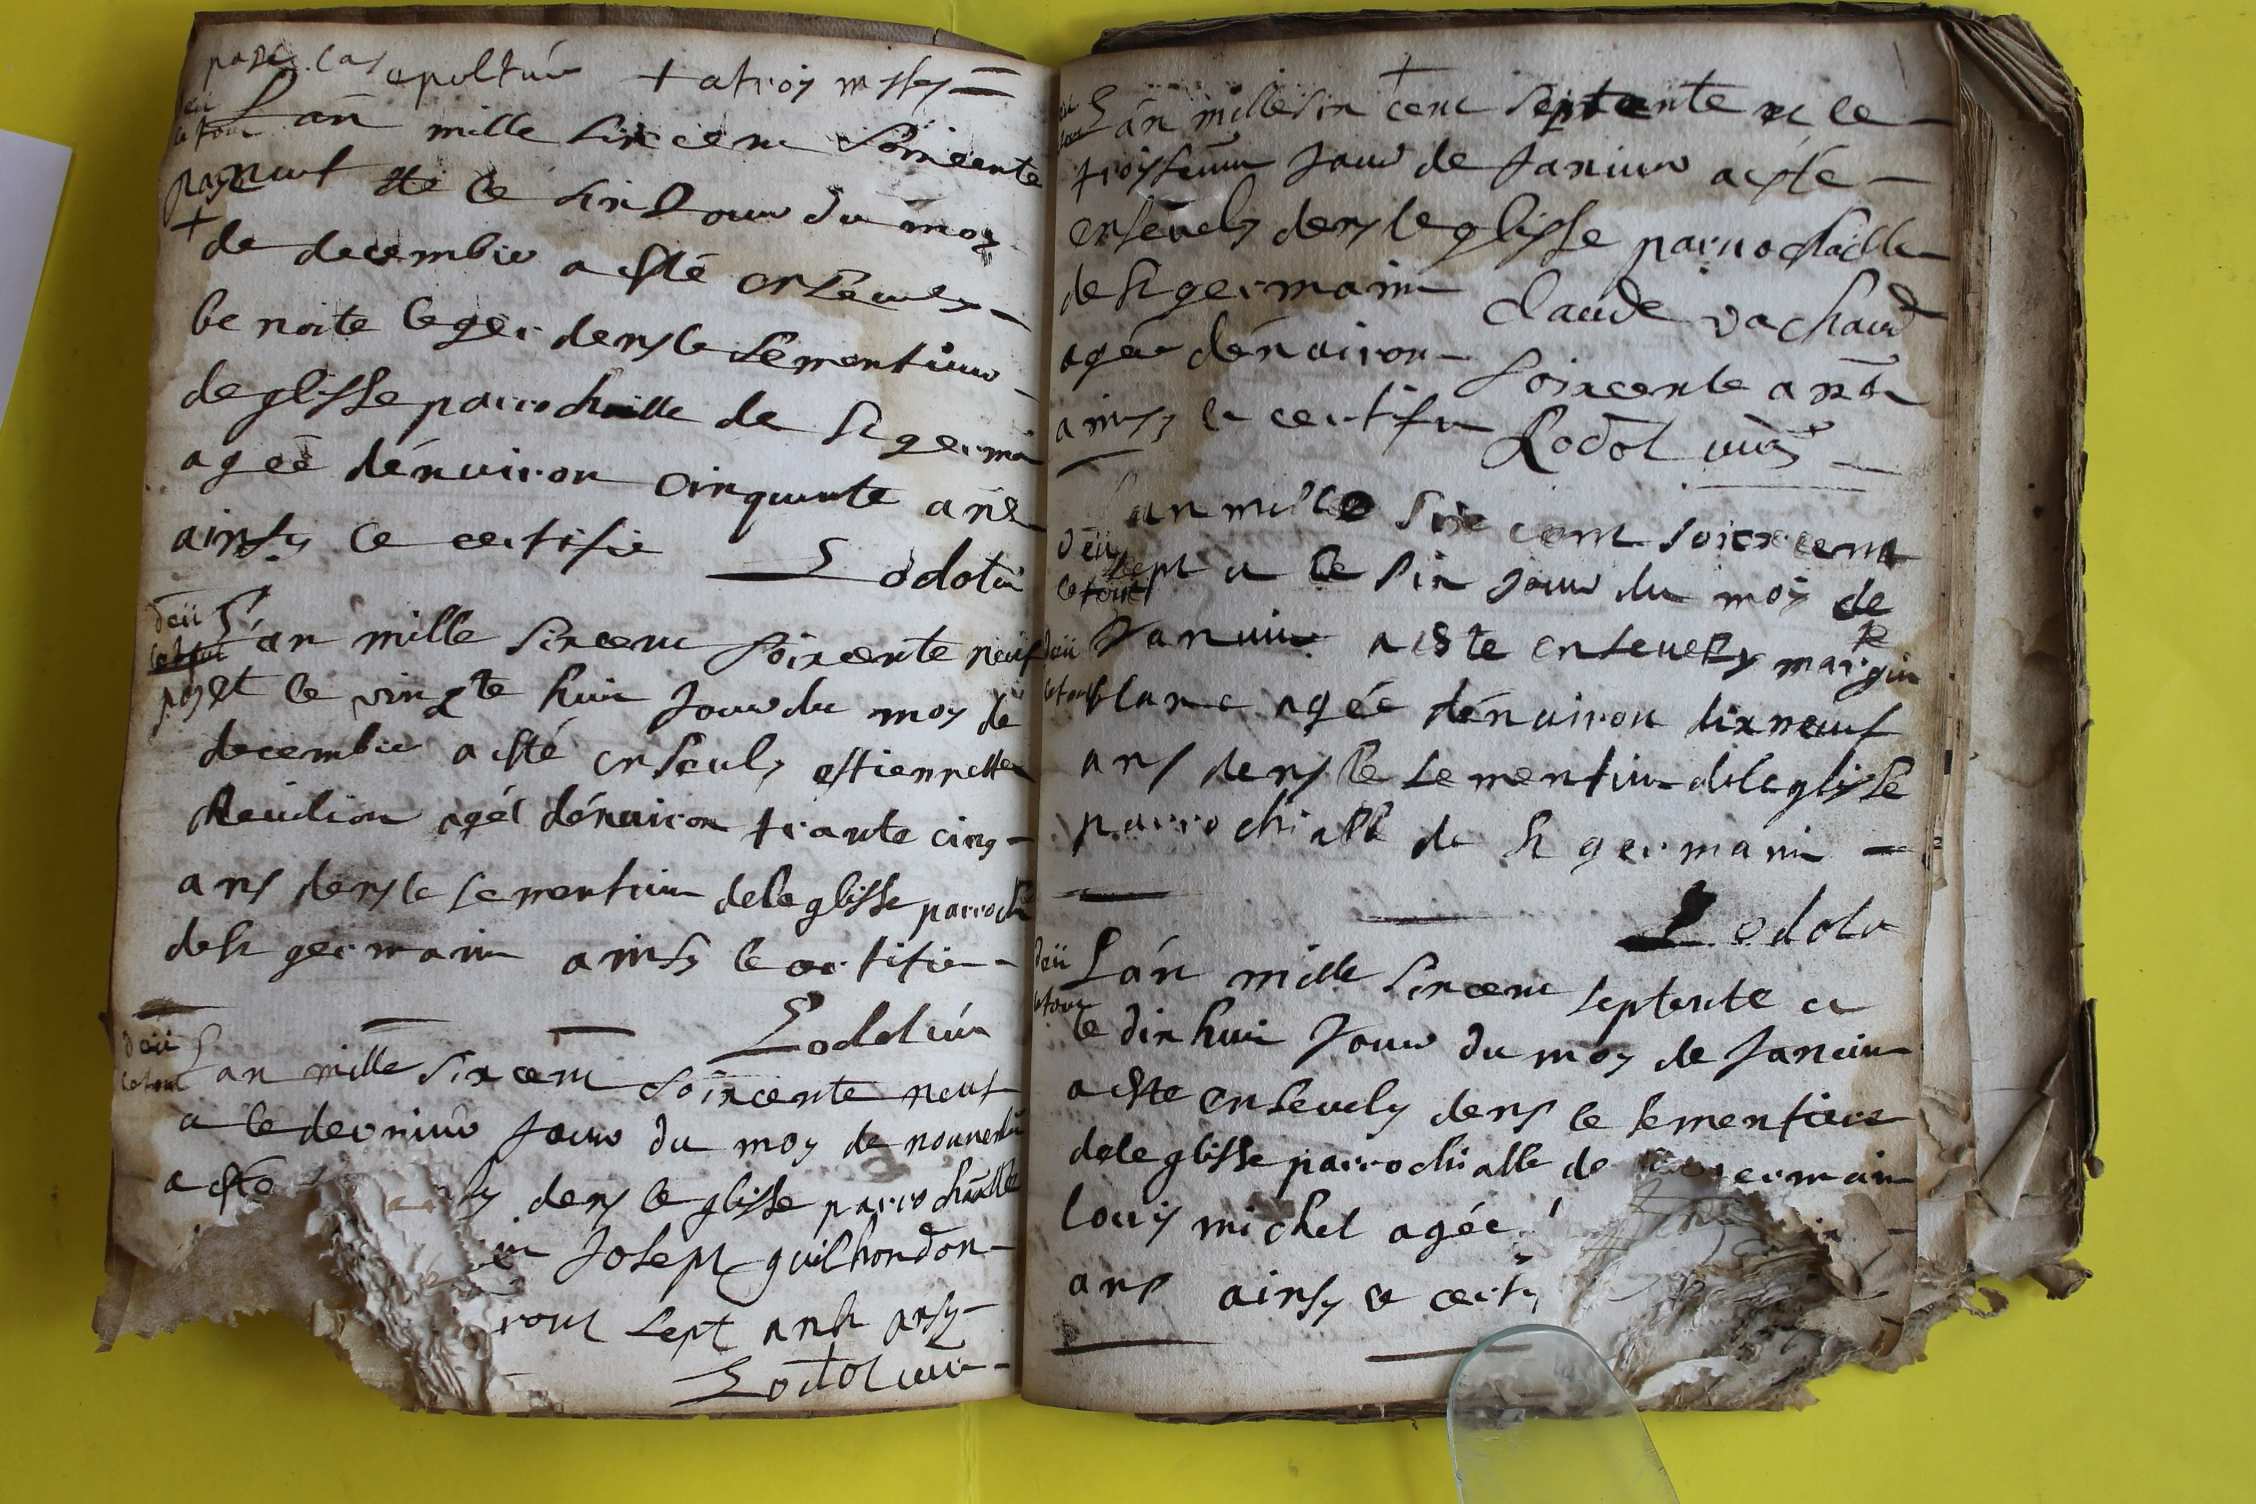 paye la sepolture + a troy messes
deü le tout
L'an mille six cent soixente
paye neuf et le sinq jour du moy
+ de decembre a esté ensevely
benoite leger dens le sementiere
de glisse parrochialle de St germain
agéé dénuiron cinquante ans
ainsy le certifie Lodot
deü le tout
L'an mille sixcent soixcente neuf
paye et le vingte huit jour du moy de
decembre a esté ensevely estiennette
agéé dénuiron trante cinq
ans dens le sementiere de leglisse parrochi
de St germain ainsy le certifie
Lodot curé
deü le tout
L'an mille sixcent soixcente neuf
et le dernier jour du moy de nouembre
a esté dens leglisse parrochialle
Joseph guilhondon
sept ans ansy
Lodot curé
deü le tout
L'an mille six cent septente et le
troyseme jour de Januier a esté
ensevely dens leglisse parrochialle
de St germain Claude vachaud
agéé dénuiron soixcente ans
ainsy le certifie Lodot curé
L'an mille six cent soixcent
deü le tout
sept et le six jour du moy de
deü le tout
Januier a este ensevely margin
blanc agéé dénuiron dix neuf
ans dens le sementiere de leglisse
parrochialle de St germain
Lodot
deü le tout
L'án mille sixcent septente et
le dix huit jour du moy de Januier
a este ensevely dens le sementiere
de leglisse parrochialle de germain
louis michel agéé
ans ainsy le certi